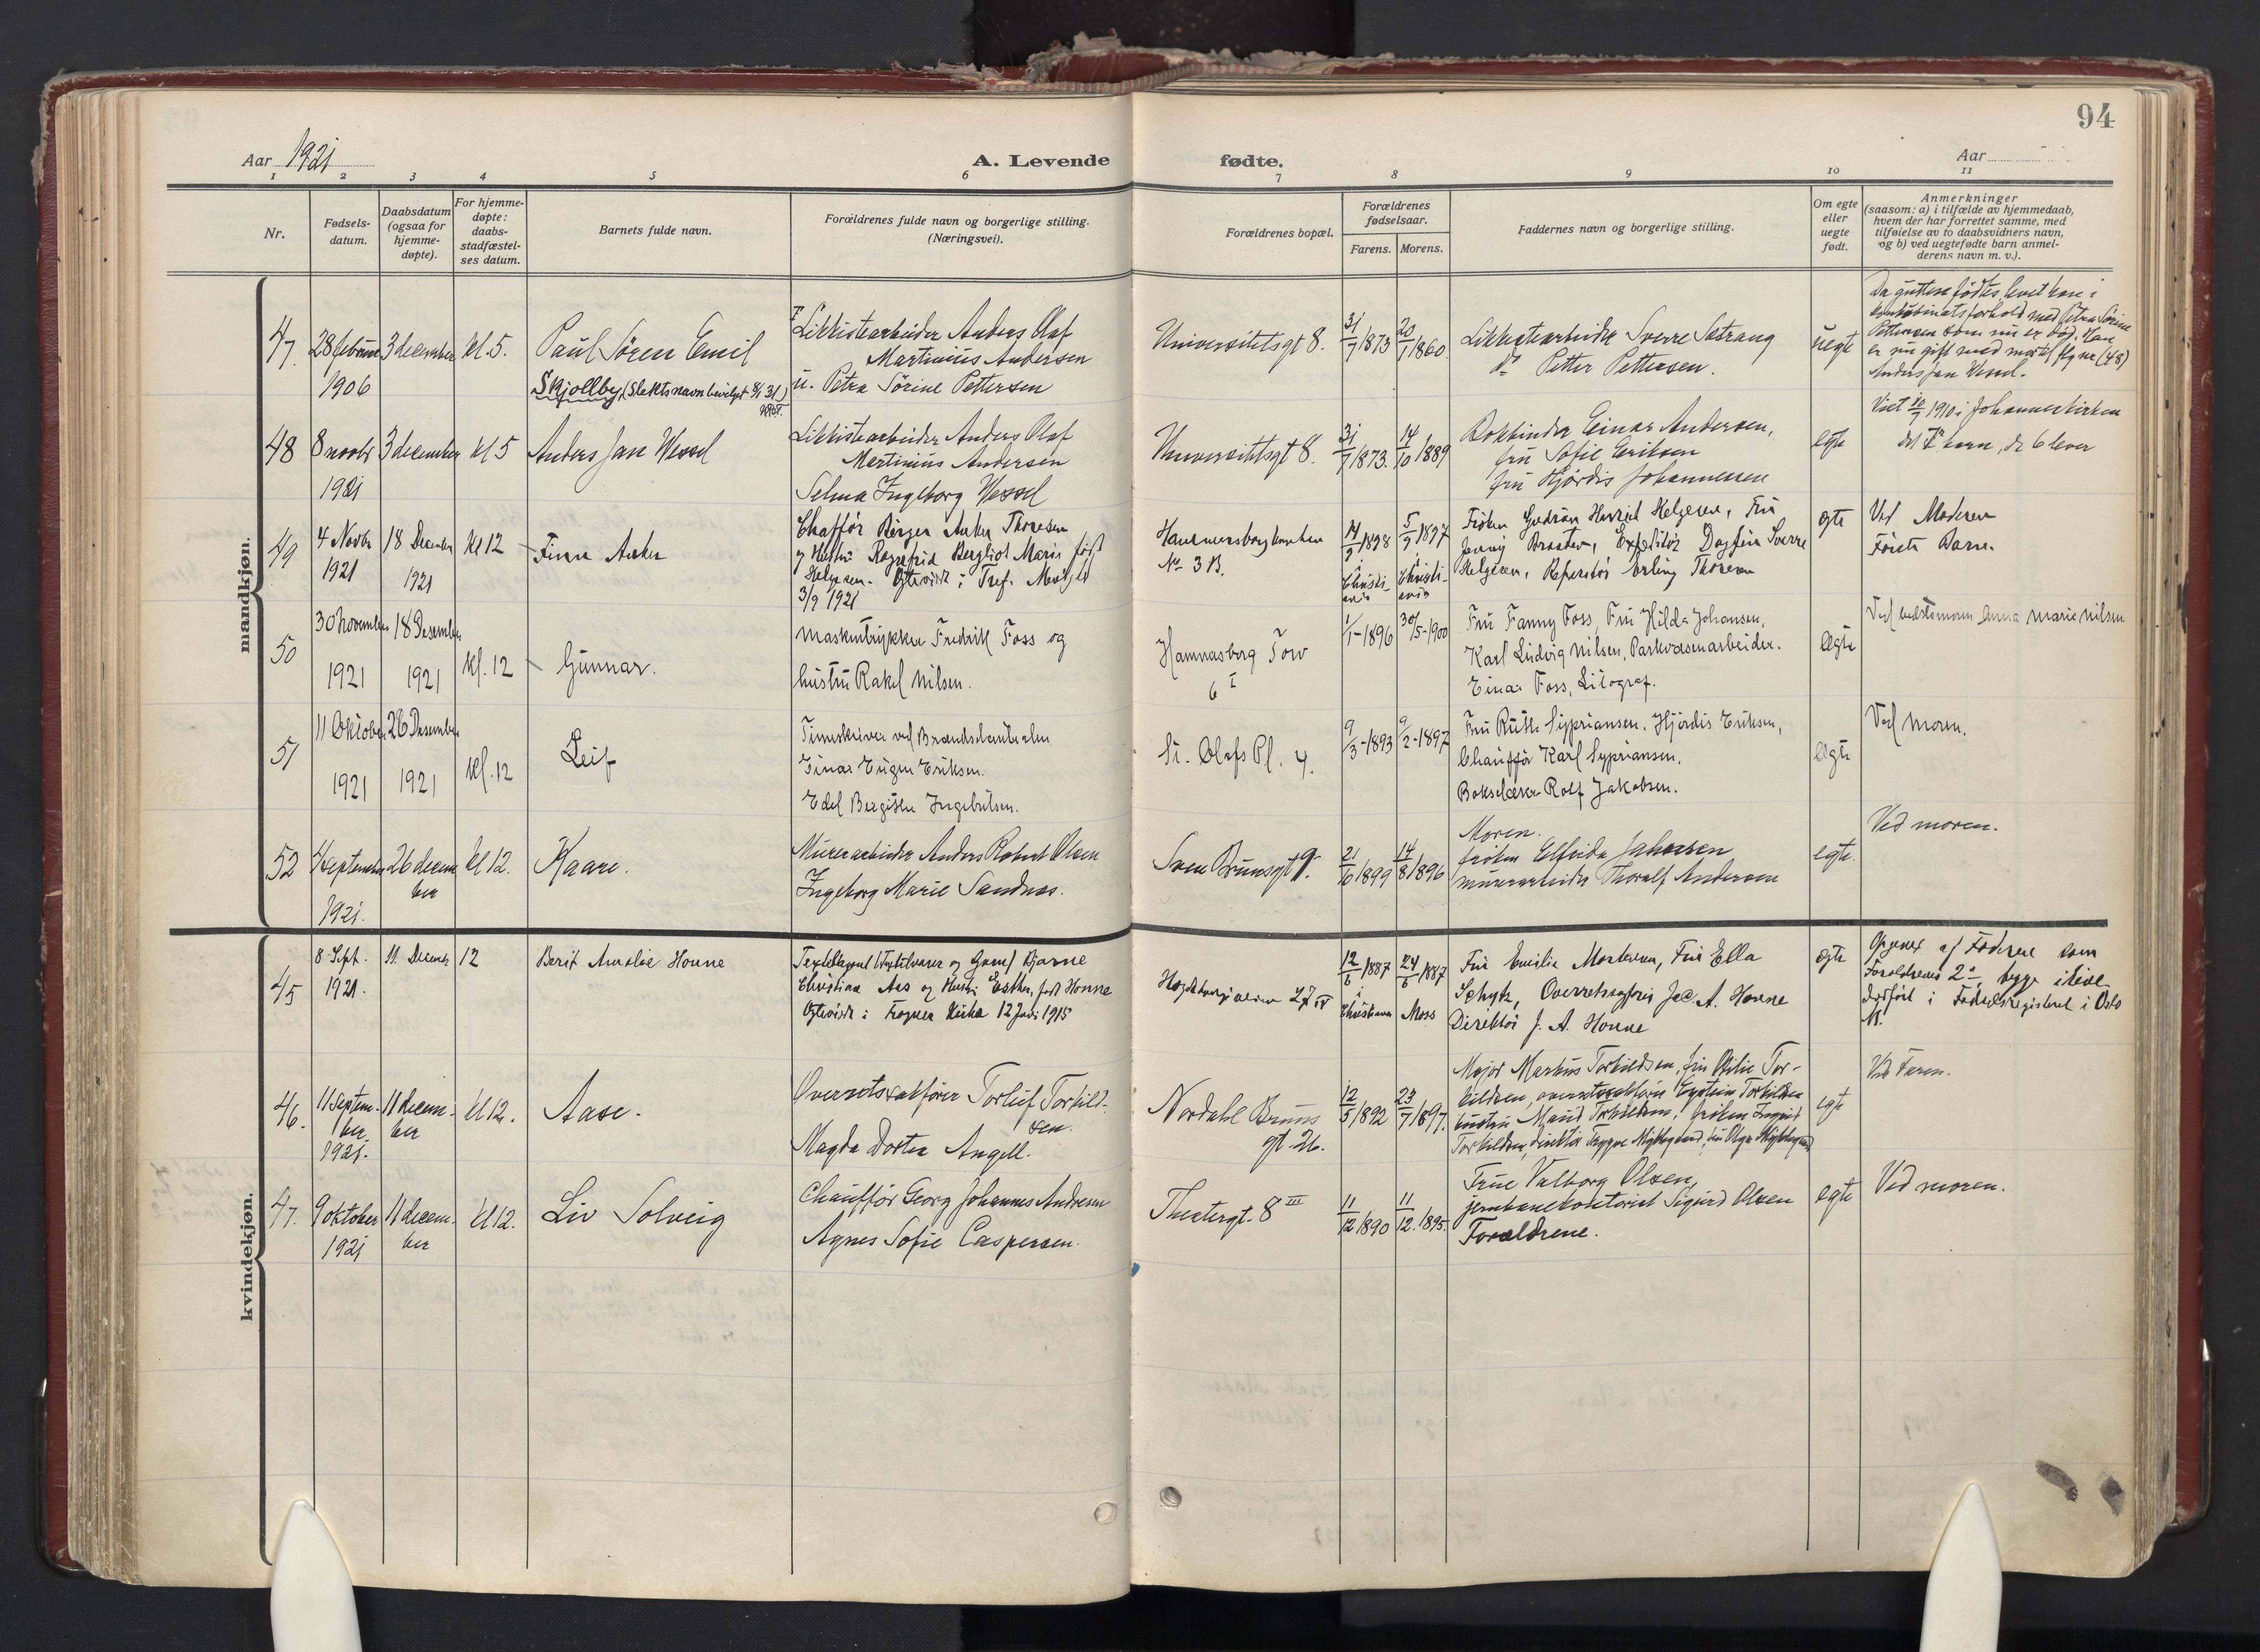 94
Aar 1921
A. Levende
fødte.
Aar
1 2 3 4 5 6 7 8 9 10 11
Nr.
Fødsels-
datum.
Daabsdatum
(ogsaa for
hjemme-
døpte).
For hjemme-
døpte:
daabs-
stadfæstel-
ses datum.
Barnets fulde navn.
Forældrenes fulde navn og borgerlige stilling.
(Næringsvei).
Forældrenes bopæl.
Forældrenes
fødselsaar.
Farens. Morens.
Faddernes navn og borgerlige stilling.
Om egte
eller
uegte
født.
Anmerkninger
(saasom: a) i tilfælde av hjemmedaab,
hvem der har forrettet samme, med
tilføielse av to daabsvidners navn,
og b) ved uegtefødte barn anmel-
derens navn m. v.).
mandkjøn.
47
28 februar
1906
3 december
kl. 5.
Paul Søren Emil
Skjollby, (Slektsnavn bevilget 8/1 31)
Likkistearbeider Anders Olaf
Martinius Andersen
u. Petra Sørine Pettersen
Universitetsgt 8.
31/7 1873
20/7 1860
Likkistearbeider Sverre Sætrang
do Petter Pettersen.
uegte
Da gutten fødtes levet han i
konkubinatsforhold med Petra Sørine
Pettersen som nu er død. Han
er nu gift med mor til flg nr (48)
Anders Jan Wessel.
48
8 novbr
1921
3 december
kl 5
Anders Jan Wessel
Likkistearbeider Anders Olaf
Martinius Andersen
Selma Ingeborg Wessel
Universitetsgt 8.
31/7 1873.
14/10 1889
Bokbinder Einar Andersen,
fru Sofie Eriksen
fru Hjørdis Johannessen
egte
Viet 10/7 1910 i Johanneskirken
det 7de barn, de 6 lever
49
4 Novbr
1921
18 December
1921
Kl 12
Finn Anker
Chaffør Birger Anker Thoresen
og Hustru Ragnfrid Bergliot Marie født
Helgesen. Ogteviede i Tref. Menighed
3/9 1921
Hammersborgtrappen
No 3 B.
14/9 1898
i
Christi-
ania
5/9 1897
i
Christi-
ania
Frøken Gudrun Harriet Helgesen, Fru
Jenny Braaten, Expeditør Dagfin Sverre
Helgesen, Reperatør Erling Thoresen
egte
Ved Moderen
Første Barn.
50
30 November
1921
18 Desember
1921
Kl. 12
Gunnar.
Maskintrykker Fredrik Foss og
hustru Rakel Nilsen.
Hammersborg Torv
6 I
1/1-1896
30/5-1900
Fru Fanny Foss, Fru Hilda Johansen,
Karl Ludvig Nilsen, Parkvæsenarbeider.
Einar Foss, Litograf.
Egte
Ved bedstemoren Anna Marie Nilsen
51
11 Oktober
1921
26 Desember
1921
Kl. 12
Leif
Timeskriver ved Brændselcentralen
Einar Eugen Eriksen.
Edel Bergitte Ingebrigtsen.
St. Olafs Pl. 4.
9/3-1893
9/2-1897
Fru Ruth Sypriansen. Hjördis Eriksen,
Chauffør Karl Sypriansen.
Bokselærer Rolf Jakobsen.
Egte
Ved moren.
52
4 september
1921.
26 decem
ber
kl 12.
Kaare.
Murerarbeider Anders Robert Olsen
Ingeborg Marie Sandnes.
Sven Brunsgt 9.
21/6 1899
14/8 1896
Moren.
frøken Elfrida Johansen
murerarbeider Thoralf Andersen
egte.
Ved moren.
kvindekjøn.
45
8 Sept.
1921.
11 Decemb
12
Berit Amalie Honne
Textilagent (Textilvarer og Garn) Bjarne
Christian Aas og Hustru Esther, født Honne
Ogteviede i Frogner Kirke 12 Juni 1915
Hegdehaugsveien 27 IV
12/6 1887
i
Christiania
24/6 1887
Moss
Fru Emilie Mortensen, Fru Ella
Schytz, Overretssagfører Jac. A. Honne
Direktør J. A. Honne
egte
Opgivet af Faderen som
Forældrenes 2det
46.
11 septem-
ber
1921.
11 decem-
ber
kl 12.
Aase.
Overretssakfører Torleif Torkild-
sen.
Magda Dortea Angell.
Nordahl Bruns
gt 26.
12/5 1892
23/7 1897.
Major Markus Torkildsen, fru Otilie Tor-
kildsen, overretssakfører Eystein Torkildsen
hustru Maud Torkildsen, frøken Ingrid
Torkildsen, direktør Trygve Myklegaard, fru Olga Myklegaard
egte
Ved Faren.
47.
9 oktober
1921
11 decem-
ber
kl 12.
Liv Solveig
Chauffør Georg Johannes Andresen
Agnes Sofie Caspersen.
Theatergt. 8 III
11/12 1890
11/12. 1895.
Frue Valborg Olsen,
jernbanekontorist Sigurd Olsen
Forældrene.
egte
Ved moren.